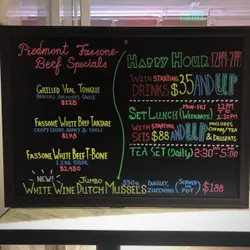 Piedmont Fassone
Beef Specials
Grilled Veal Tongue
$128
Fassone White Beef Tartare
Crispy Chips, Honey & Chili
$198
Fassone White Beef T-Bone
$2,480
NEW! Jumbo
White Wine Dutch Mussels
350g Parsley, Zucchini (Served in Pot) $188
Happy Hour 12PM-9PM
With Starting
Drinks $35 AND UP
Set Lunch (Weekdays) Mon-Fri
With Starting
Sets $88 AND UP Includes Coffee/Tea & Desserts
Tea Set (Daily) 2:30-5:00